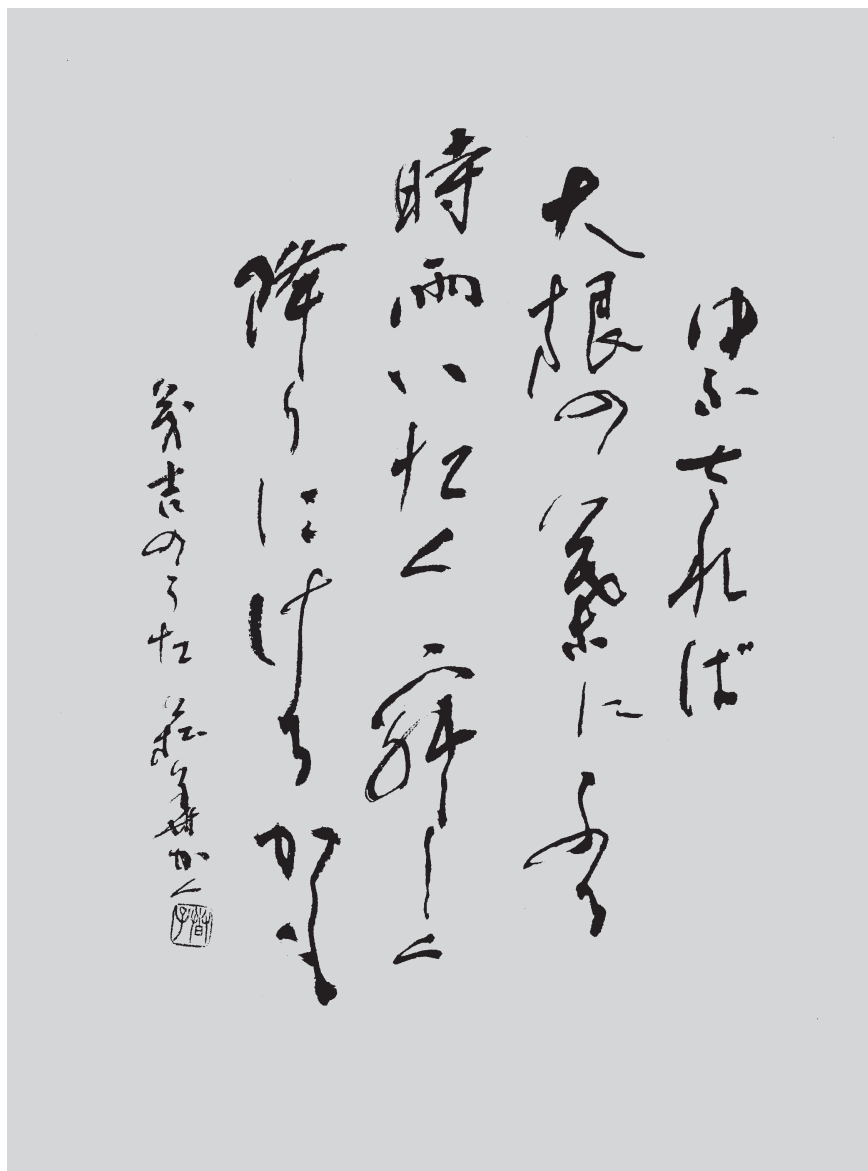 ゆふされば
大根の葉にふる
時雨いたく寂しく
降りにけるかも
茂吉のうた かく